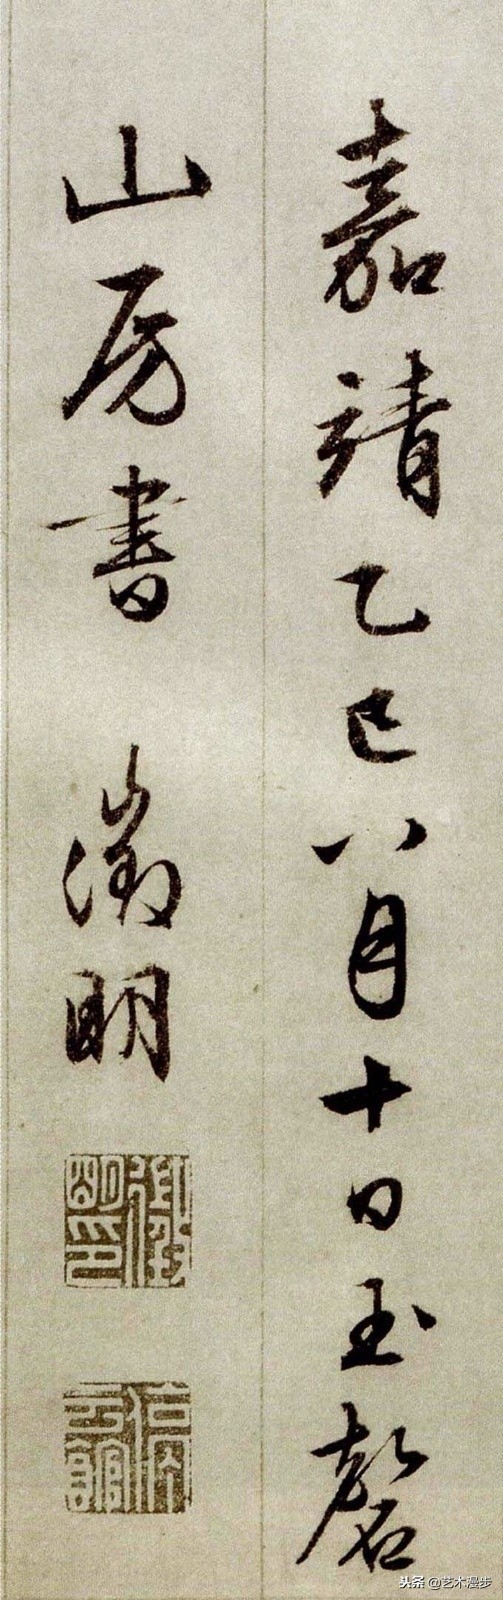 嘉靖乙巳八月十日玉磬
山房書 徵明
徵明印
停雲館
头条 @艺术漫步